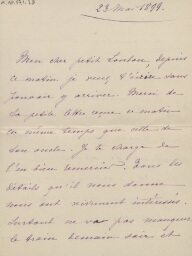 23 Mai 1899.
Mon cher petit Loulou, depuis
ce matin je veux t'écrire sans
pouvoir y arriver. Merci de
ta petite lettre reçue ce matin
en même temps que celle de
ton oncle. Je te charge de
l'en bien remercier. Tous les
détails qu'il nous donne
nous ont vivement intéressés.
Surtout ne va pas manquer
le train demain soir et